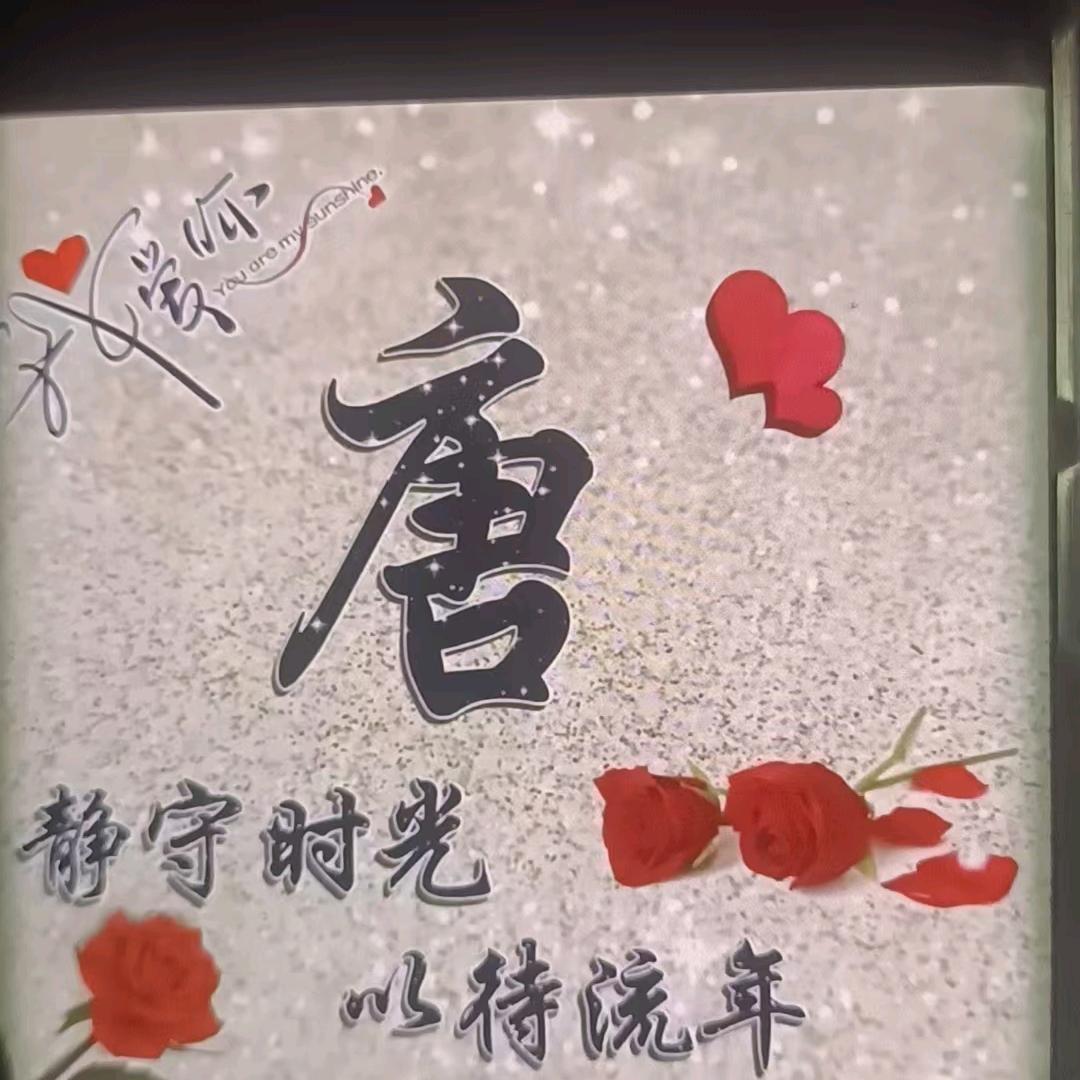 我爱你
You are my sunshine.
唐
静守时光
以待流年